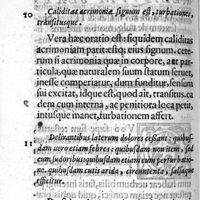 10 Caliditas acrimonia signum est, turbationes,
transitusque.
Vera hæc oratio est: siquidem caliditas
acrimoniam parit: estq; eius signum. cete-
rum si acrimonia quæ in corpore, aut par-
ticula, quæ naturalem suum statum seruet,
inesse comperiatur, dum funditur, sensui
sui excitat, idque est quod ait, transitus. ea-
dem cum interna, ac penitiora loca petit,
intusque manet, turbationem affert.
11 Desinantibus laterum dolores cessant: quibus-
dam vero etiam febres: quibusdam non item, sed
cum sudoribus: quibusdam etiam cum perturbatio-
ne. quibusdam cutis arida, circumtenta, salsaque
efficitur.